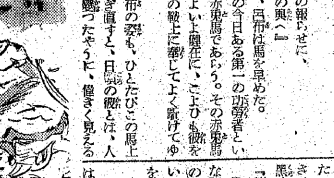 の報らせに、
の奥へ』
、呂布は馬を早めた。
の今日ある第一の功勞者とい
赤兎馬であらう。その赤兎馬
よいよ健在に、こよひも彼を
の鞍上に奉じてよく駈けてゆ
布の姿も、ひとたびこの馬上
き直すと、日頃の彼とは、人
變つたやうに、偉きく見える